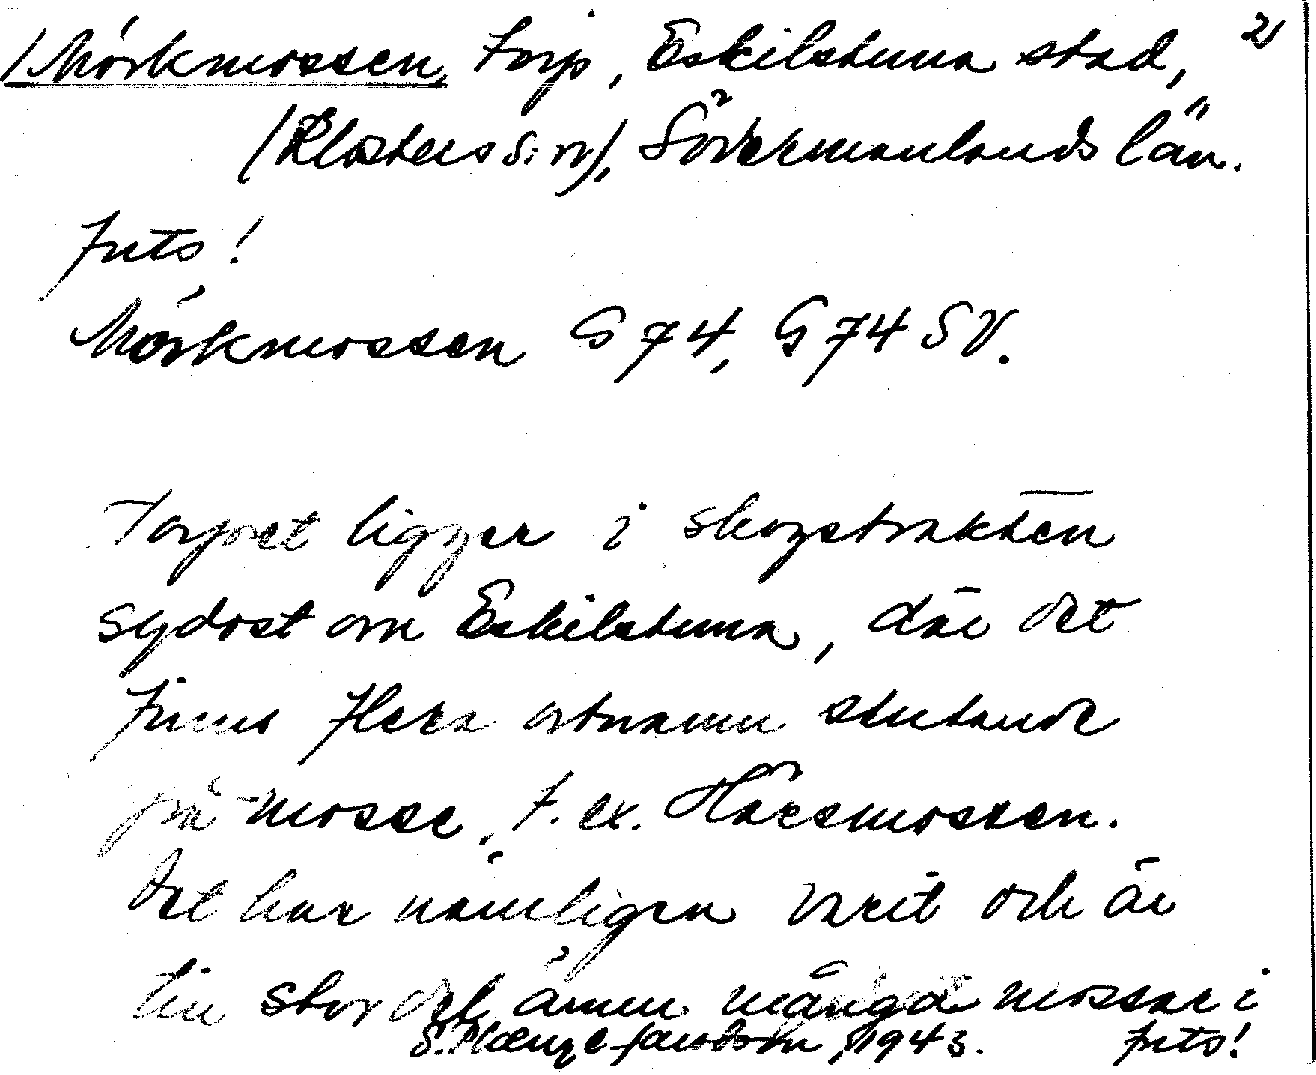 /Mörkmossen, torp, Eskilstuna stad, 2)
(Klosters sn), Södermanlands län.
Forts!
Mörkmossen G 74, G 74 SV.
Torpet ligger i skogstrakten
sydost om Eskilstuna, där det
finns flera ortnamn slutande
på -mosse, t. ex. Häresmossen.
Det har nämligen varit och är
till stor del ännu många mossar i
S. 1943. Forts!